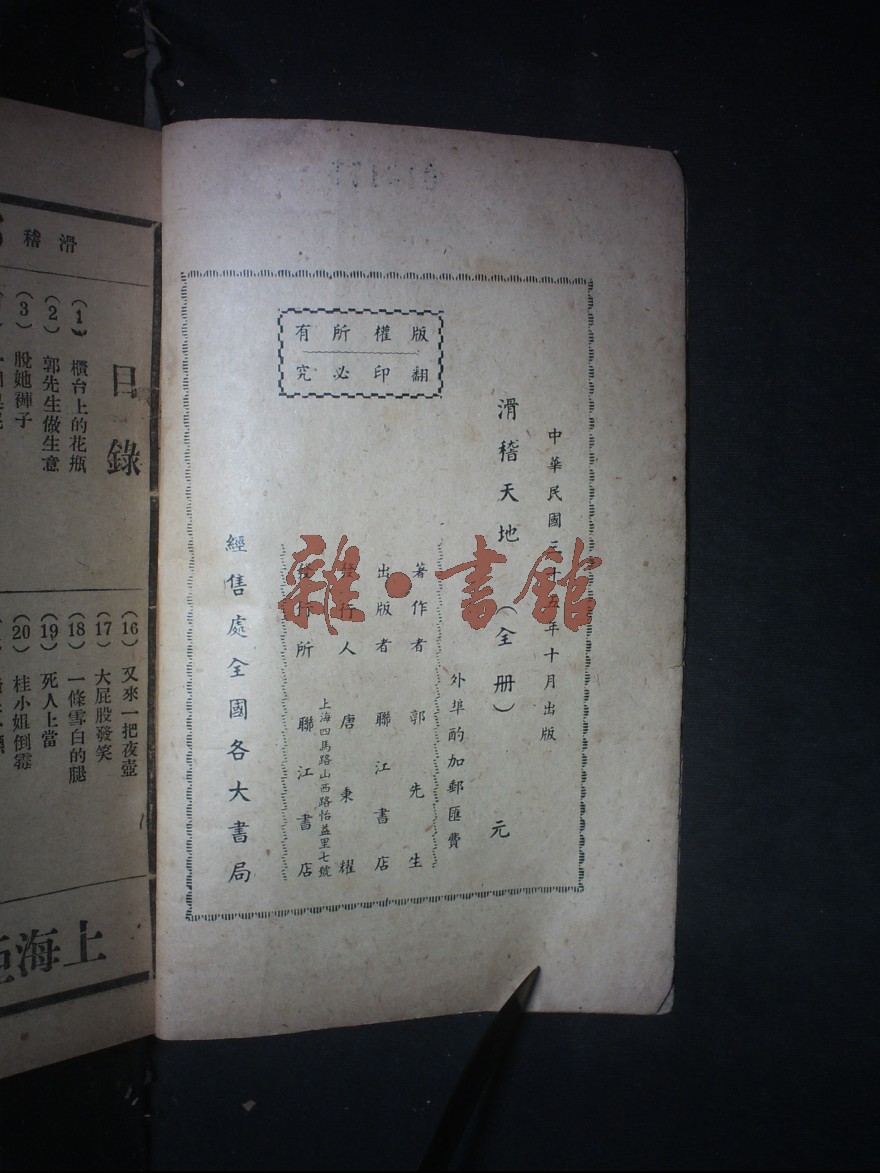 版權所有
翻印必究
中華民國三十五年十月出版
滑稽天地（全冊） 元
外埠酌加郵匯費
著作者 郭先生
出版者 聯江書店
發行人 唐秉耀
上海四馬路山西路怡益里七號
發行所 聯江書店
經售處全國各大書局
雜·書館
滑稽
目錄
（1）櫃台上的花瓶
（2）郭先生做生意
（3）脫她褲子
（16）又來一把夜壺
（17）大屁股發笑
（18）一條雪白的腿
（19）死人上當
（20）桂小姐倒霉
上海